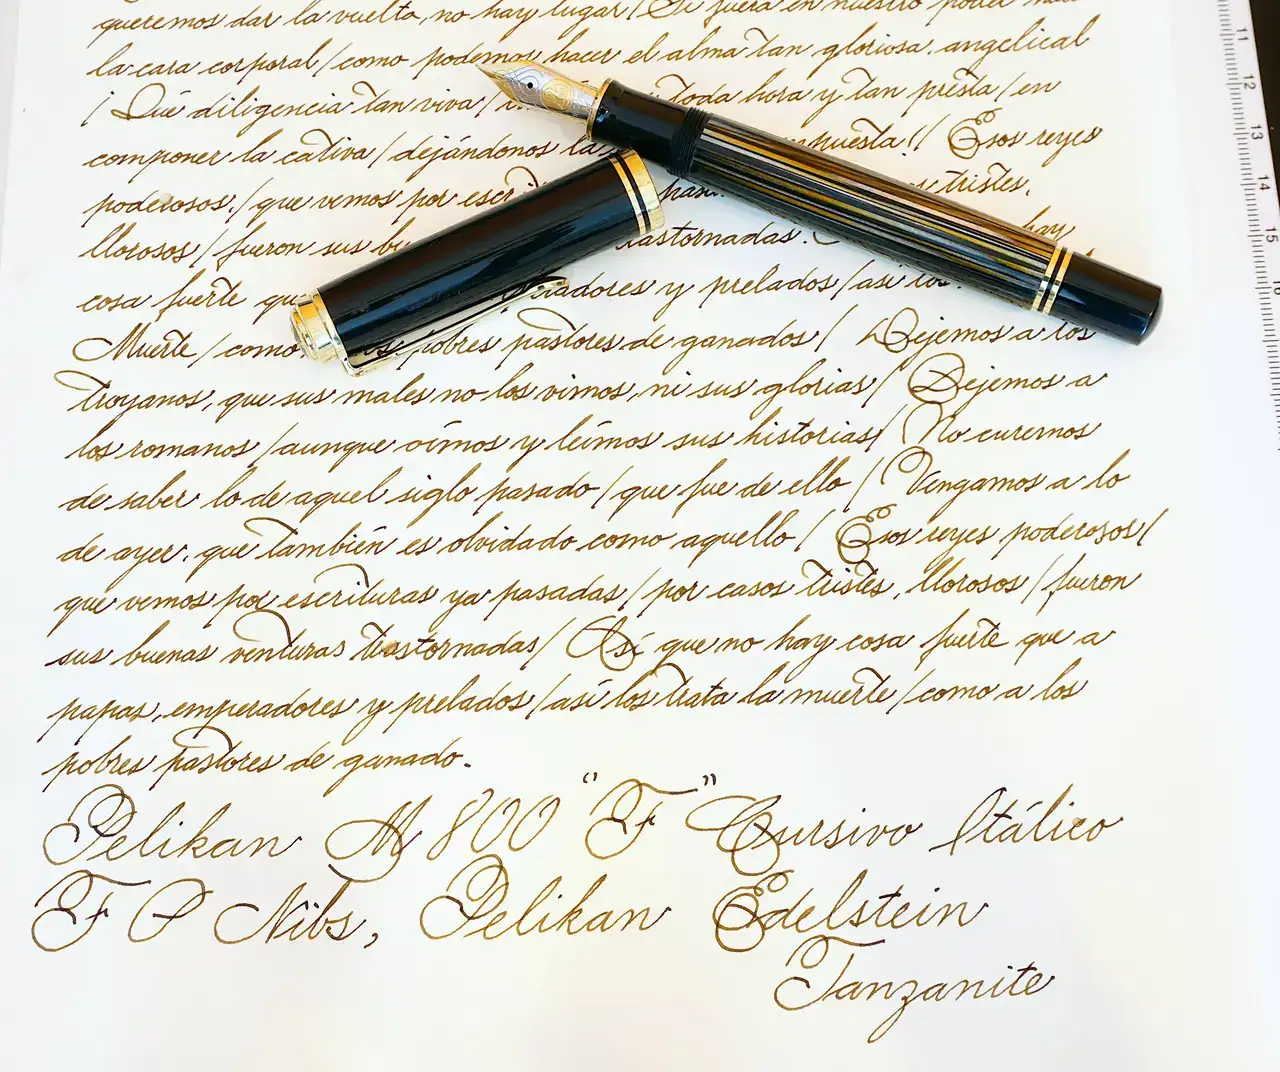 queremos dar la vuelta, no hay lugar / Si fuera en nuestro poder
la cara corporal / como podemos hacer el alma tan gloriosa, angelical
¡ Qué diligencia tan viva / toda hora y tan presta / en
componer la cativa / dejándonos la !/ Esos reyes
poderosos / que vemos por tristes,
llorosos / fueron sus trastornadas. hay
cosa fuerte y prelados / así los
Muerte / como pobres pastores de ganados / Dejemos a los
troyanos, que sus males no los vimos, ni sus glorias / Dejemos a
los romanos / aunque oímos y leímos sus historias / No curemos
de saber lo de aquel siglo pasado / que fue de ello / Vengamos a lo
de ayer, que también es olvidado como aquello / Esos reyes poderosos /
que vemos por escrituras ya pasadas / por casos tristes, llorosos / fueron
sus buenas venturas trastornadas / Así que no hay cosa fuerte que a
papas, emperadores y prelados / así los trata la muerte / como a los
pobres pastores de ganado.
Pelikan M 800 "F" Cursivo Itálico
F P Nibs, Pelikan Edelstein
Tanzanite
11
12
13
14
15